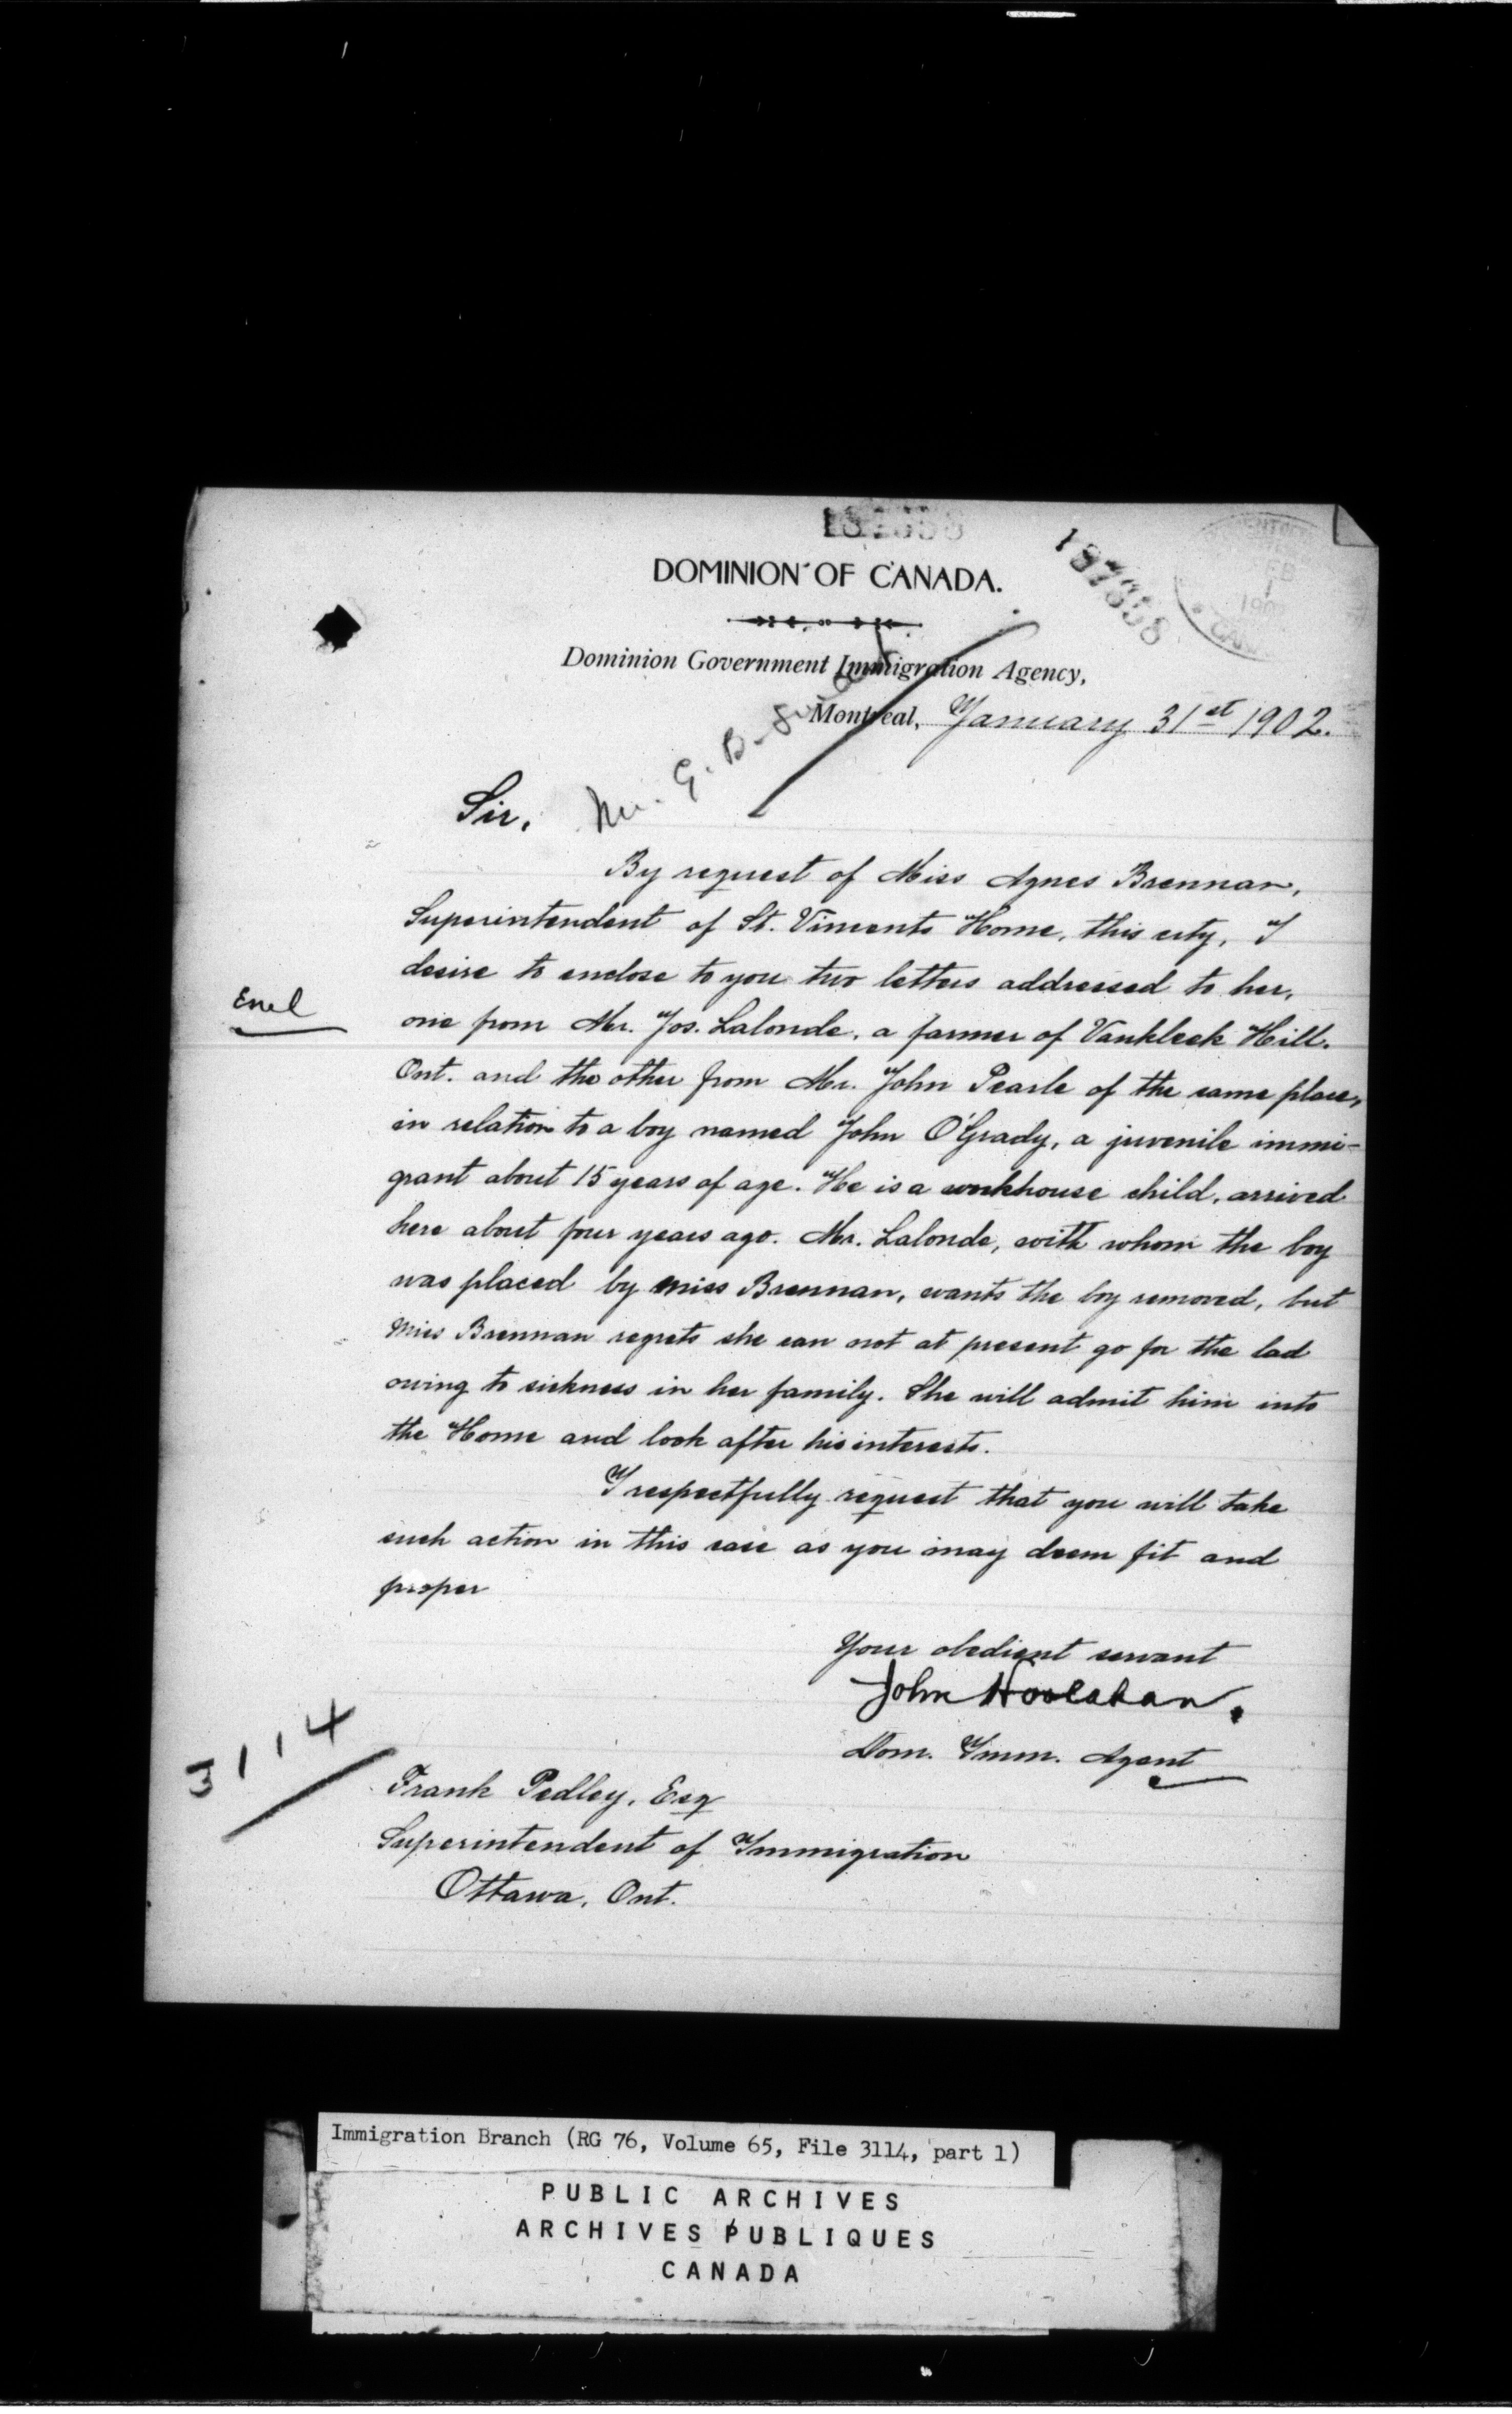 187358
DOMINION OF CANADA.
FEB
1
190
Dominion Government Immigration Agency,
Montreal, January 31st 1902.
Mr. G. B.
Sir,
By request of Miss Agnes Brennan,
Superintendent of St. Vincents Home, this city, I
desire to enclose to you two letters addressed to her,
Encl
one from Mr. Jos. Lalonde, a farmer of Vankleek Hill.
Ont. and the other from Mr. John Pearle of the same place,
in relation to a boy named John O'Grady, a juvenile immi-
grant about 15 years of age. He is a workhouse child, arrived
here about four years ago. Mr. Lalonde, with whom the boy
was placed by Miss Brennan, wants the boy removed, but
Miss Brennan regrets she can not at present go for the lad
owing to sickness in her family. She will admit him into
the Home and look after his interests.
I respectfully request that you will take
such action in this case as you may deem fit and
proper
Your obedient servant
John Hoolahan.
Dom. Imm. Agent
3114
Frank Pedley, Esq
Superintendent of Immigration
Ottawa, Ont.
Immigration Branch (RG 76, Volume 65, File 3114, part 1)
PUBLIC ARCHIVES
ARCHIVES PUBLIQUES
CANADA